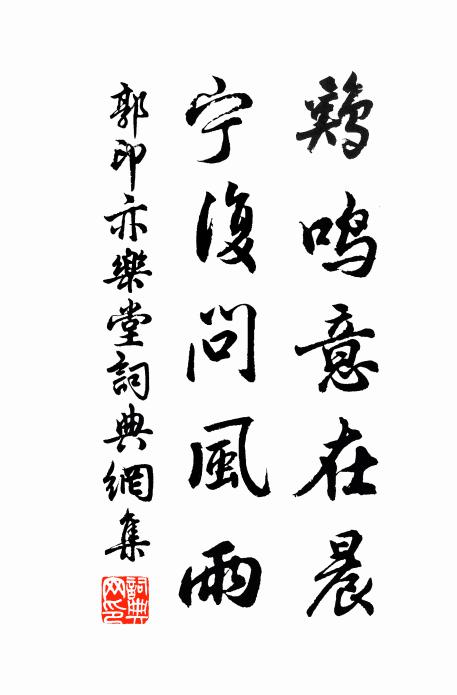 鷄鳴意在晨
宁復問風雨
郭印亦樂堂詞典網集
詞典网印